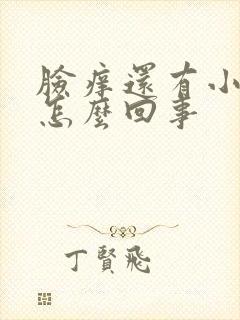 臉痒還有小
怎麼回事
丁賢飛